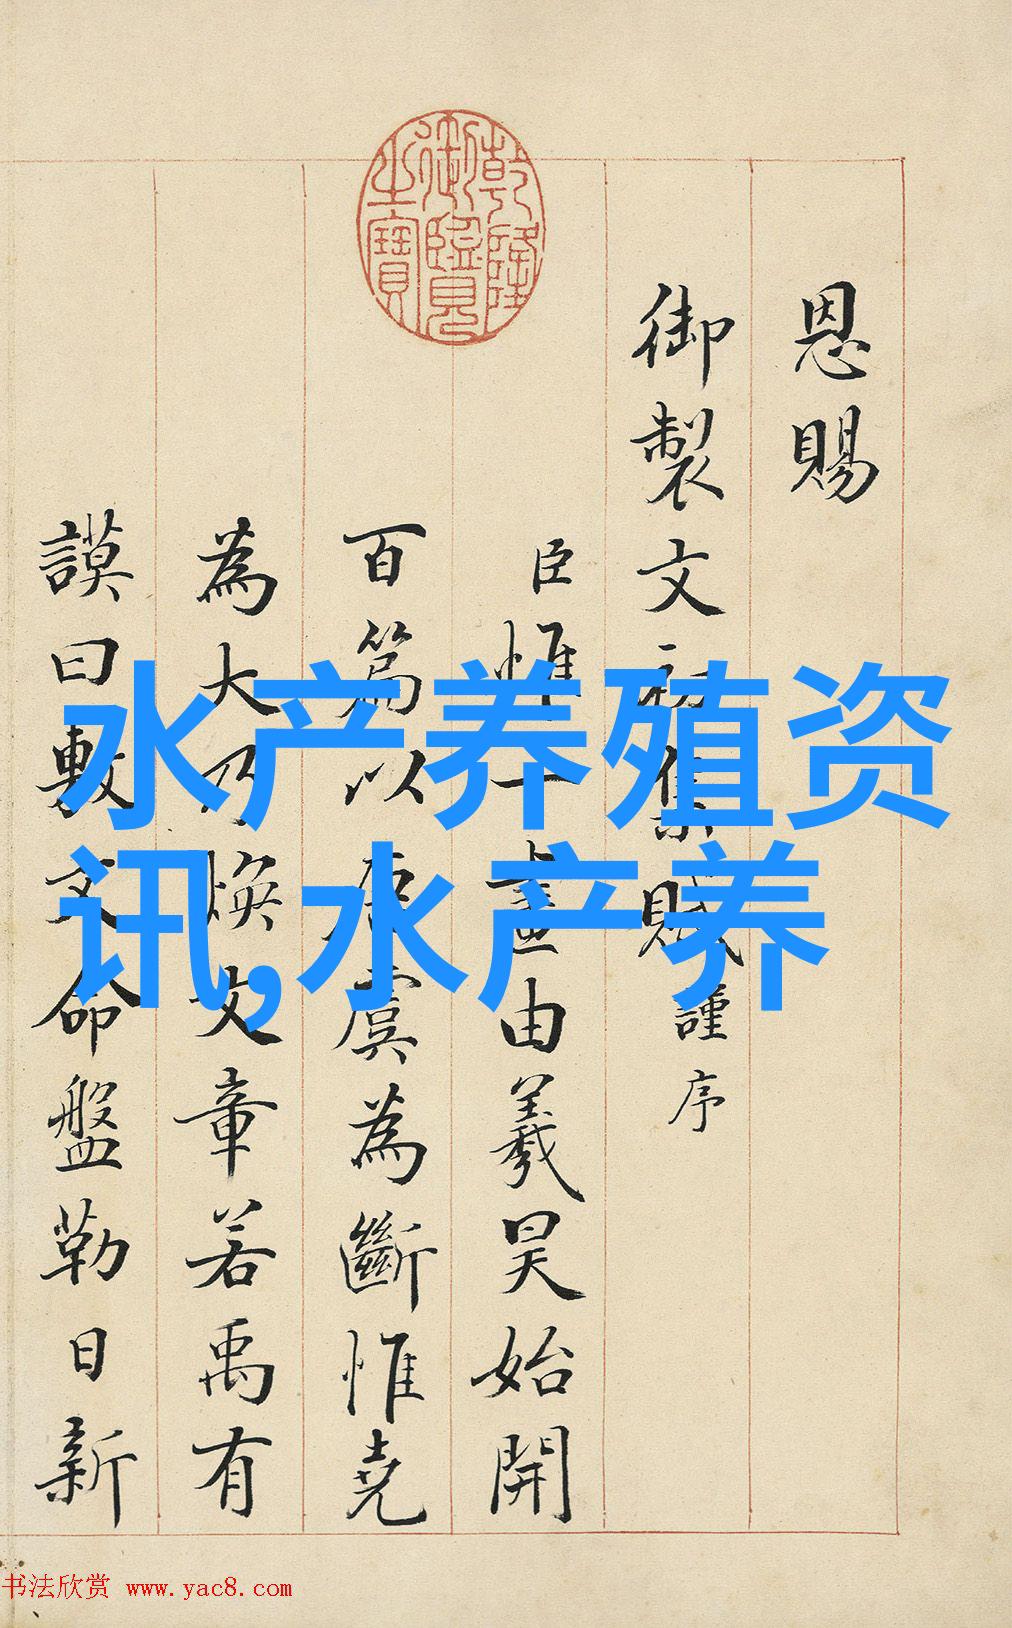 恩賜
御製文初集賦謹序
臣惟一畫由羲昊始開
百篇以唐虞為斷惟堯
為大乃煥文章若禹有
謨曰敷文命盤勒日新
乾隆御覽之寶
水产养殖资
讯,水产养
书法欣赏 www.yac8.com